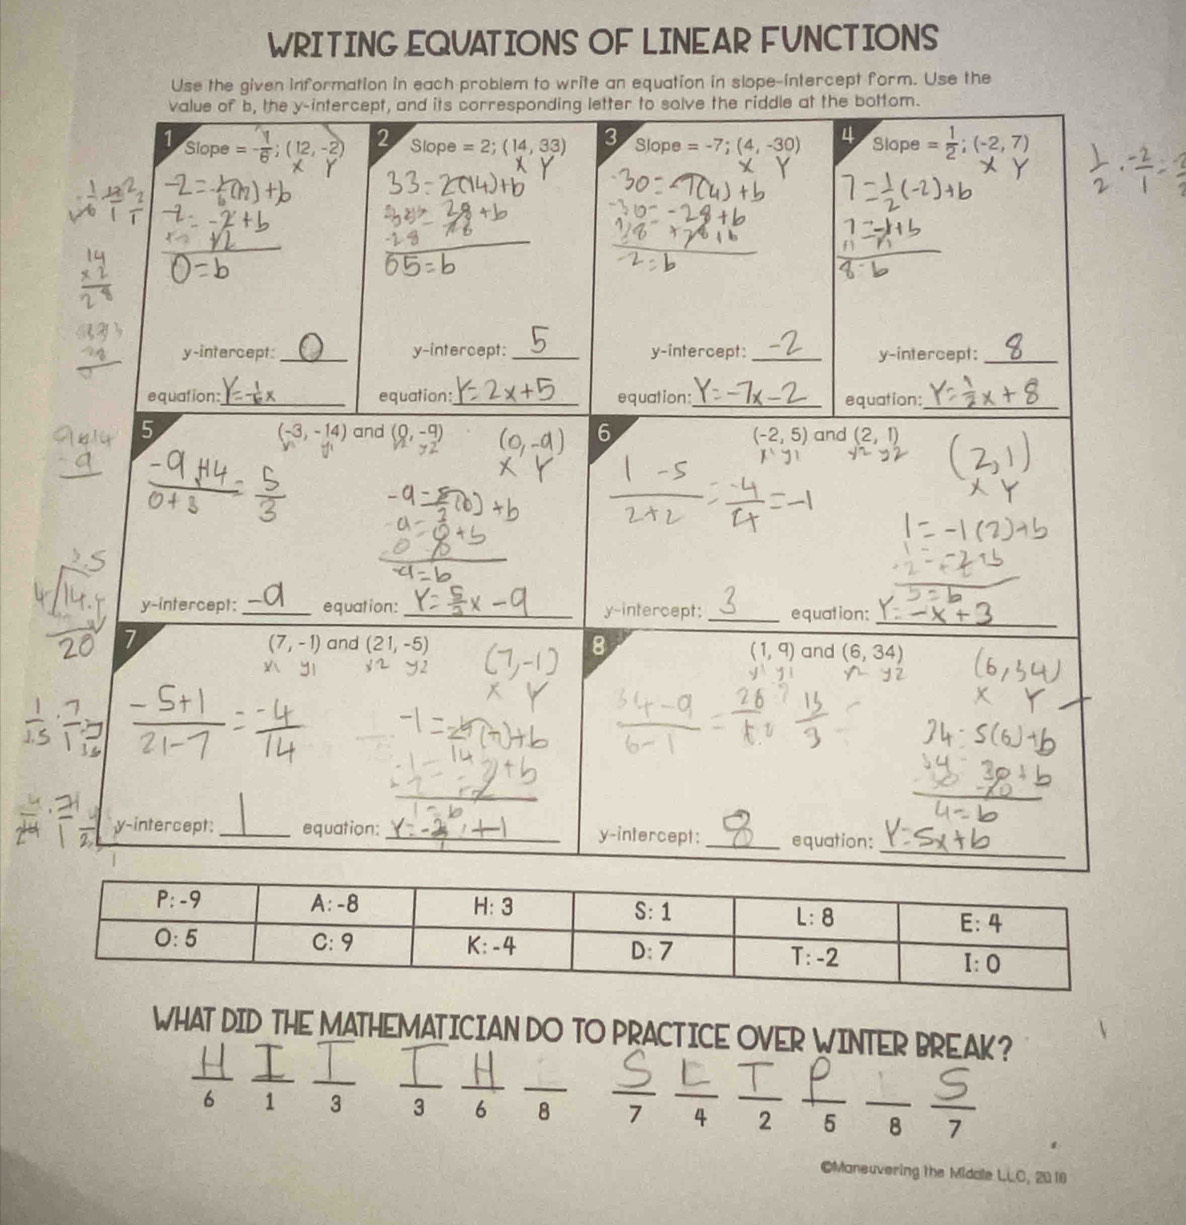 WRITING EQUATIONS OF LINEAR FUNCTIONS
Use the given information in each problem to write an equation in slope-intercept form. Use the
value of b, the y-intercept, and its corresponding letter to solve the riddle at the bottom.
1 Slope = -1/6; (12, -2)
x y
-2 = -1/6(12)+b
-2 = -2+b
+2 +2
0=b
y-intercept: 0
equation: y=-1/6x
2 Slope = 2; (14, 33)
x y
33=2(14)+b
28+b
-28
05=b
y-intercept: 5
equation: y=2x+5
3 Slope = -7; (4, -30)
x y
-30=-7(4)+b
-30=-28+b
-2=b
y-intercept: -2
equation: y=-7x-2
4 Slope = 1/2; (-2, 7)
x y
7=1/2(-2)+b
7=-1+b
8=b
y-intercept: 8
equation: y=1/2x+8
14
x2
28
5 (-3, -14) and (0, -9)
x1 y1 x2 y2
(0,-9)
x y
-9+14/0+3 = 5/3
-9=5/3(0)+b
-9=0+b
-9=b
y-intercept: -9 equation: y=5/3x-9
6 (-2, 5) and (2, 1)
x1 y1 x2 y2
(2,1)
x y
1-5/2+2 = -4/4 = -1
1=-1(2)+b
1=-2+b
3=b
y-intercept: 3 equation: y=-x+3
3.5
20
7 (7, -1) and (21, -5)
x1 y1 x2 y2
(7,-1)
x y
-5+1/21-7 = -4/14
1=b
y-intercept: 1 equation:
8 (1, 9) and (6, 34)
y1 y1 x2 y2
(6,34)
x y
34-9/6-1
34=5(6)+b
34 30+b
4=b
y-intercept: 8 equation: y=5x+b
P: -9 A: -8 H: 3 S: 1 L: 8 E: 4
O: 5 C: 9 K: -4 D: 7 T: -2 I: 0
WHAT DID THE MATHEMATICIAN DO TO PRACTICE OVER WINTER BREAK?
H I T T H S L T P S
6 1 3 3 6 8 7 4 2 5 8 7
©Maneuvering the Middle LLC, 2016